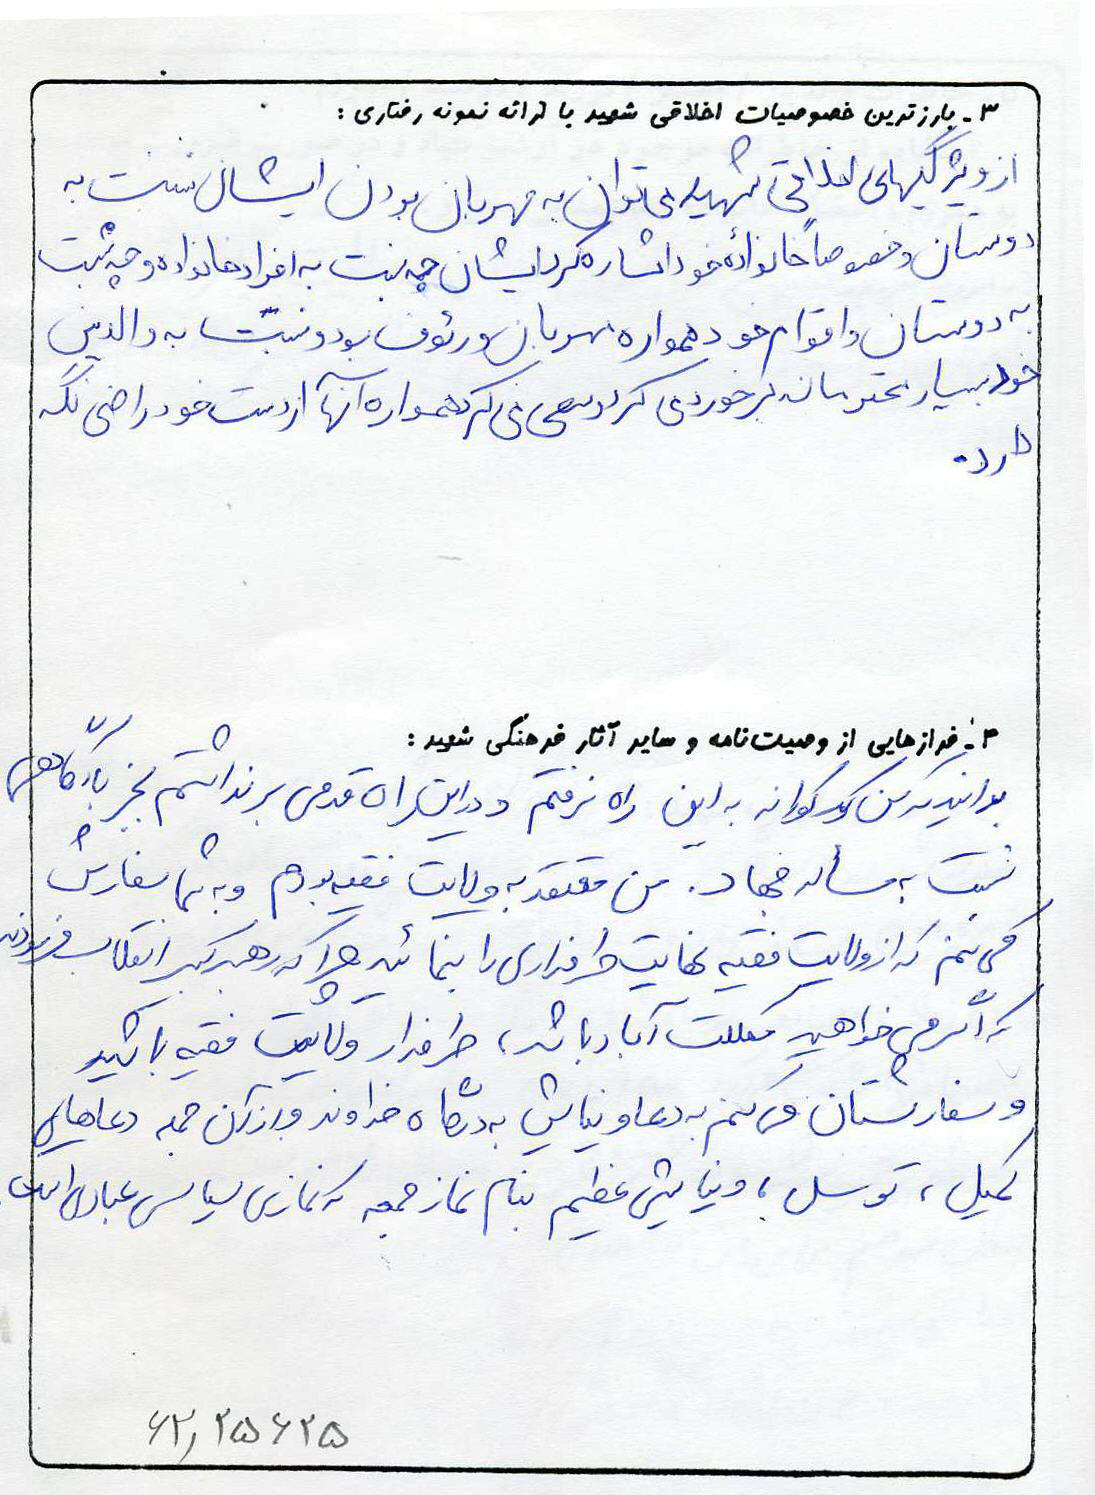 ۳ - بارزترین خصوصیات اخلاقی شهید با ارائه نمونه رفتاری :
از ویژگیهای اخلاقی شهید می توان به مهربان بودن ایشان نسبت به
دوستان و خصوصاً خانوادهٔ خود اشاره کرد ایشان چه نسبت به افراد خانواده و چه نسبت
به دوستان و اقوام خود همواره مهربان و رئوف بود و نسبت به والدین
خود بسیار محترمانه برخورد می کرد و سعی می کرد همواره آنها از دست خود راضی نگه
دارد.
۴ - فرازهایی از وصیت‌نامه و سایر آثار فرهنگی شهید :
بدانید که من کورکورانه به این راه نرفتم و در این راه قدمی برنداشتم بجز با آگاهی
نسبت به مسأله جهاد. من معتقد به ولایت فقیه بودم و به شما سفارش
می کنم که از ولایت فقیه نهایت طرفداری را بنمائید چرا که رهبر کبیر انقلاب فرمودند
که اگر می خواهید مملکت آباد باشد، طرفدار ولایت فقیه باشید
و سفارشتان می کنم به دعا و نیایش به درگاه خداوند و از آن جمله دعاهای
کمیل ، توسل ، و نیایش عظیم بنام نماز جمعه که نمازی سیاسی عبادی است.
۶۲٫۲۵۶۲۵